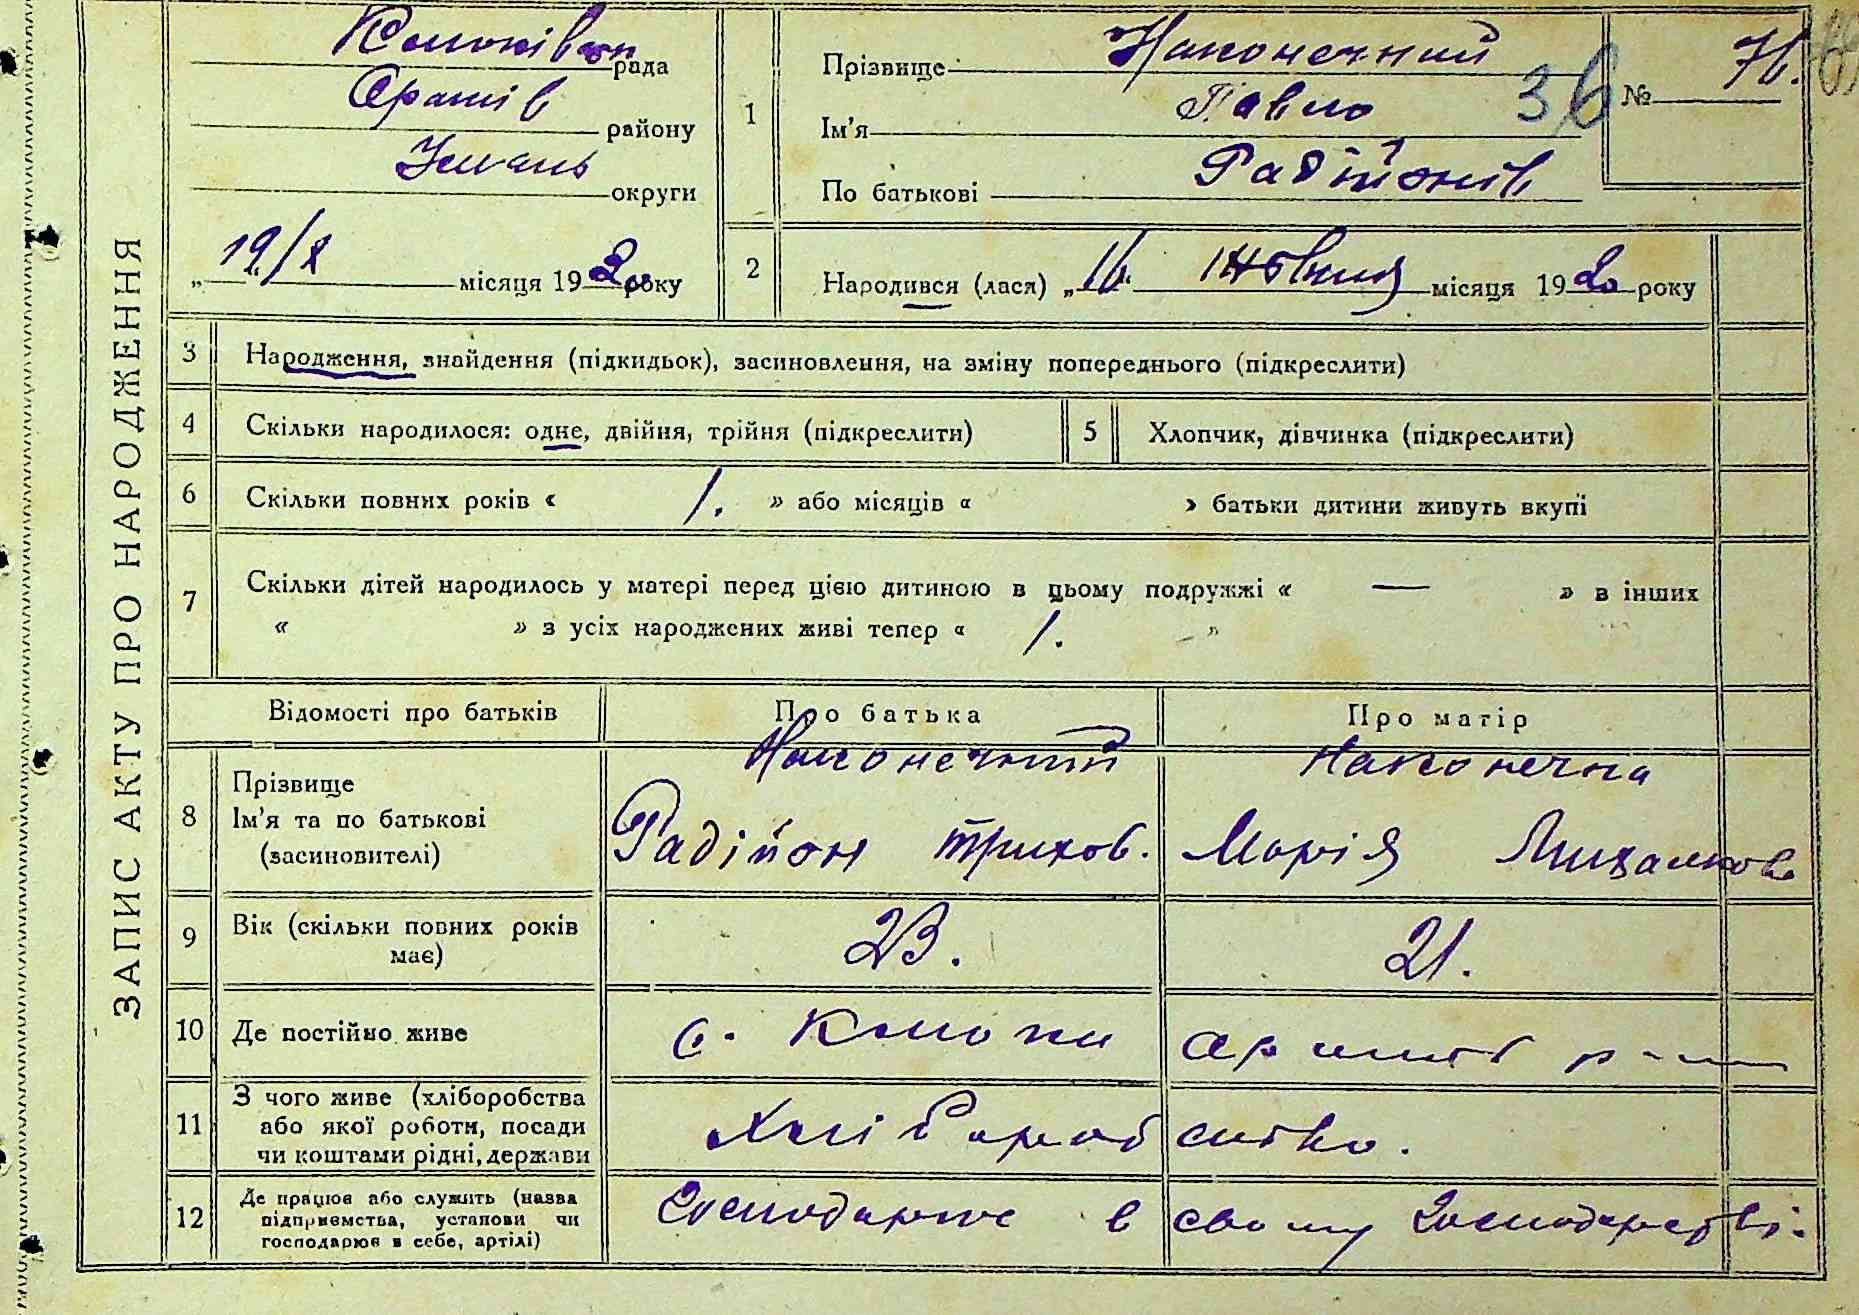 ЗАПИС АКТУ ПРО НАРОДЖЕННЯ
рада
Оратів району
Умань округи
„ 19/X місяця 19 року
1
Прізвище Наконечний
Ім'я Павло
По батькові Радійонів
36
№ 76.
2 Народився (лася) „ 16. жовтня місяця 19 року
3 Народження, знайдення (підкидьок), засиновлення, на зміну попереднього (підкреслити)
4 Скільки народилося: одне, двійня, трійня (підкреслити) 5 Хлопчик, дівчинка (підкреслити)
6 Скільки повних років « 1. » або місяців « » батьки дитини живуть вкупі
7 Скільки дітей народилось у матері перед цією дитиною в цьому подружжі « — » в інших
« » з усіх народжених живі тепер « 1. »
Відомості про батьків Про батька Про матір
8 Прізвище
Ім'я та по батькові
(засиновителі)
Наконечний
Радійон Трихов.
Наконечна
Марія Михалкова
9 Вік (скільки повних років
має)
23. 21.
10 Де постійно живе с. Клюки Оратів р-н
11 З чого живе (хліборобства
або якої роботи, посади
чи коштами рідні, держави
Хліборобство.
12 Де працює або служить (назва
підприємства, установи чи
господарює в себе, артілі)
Господарює в свому господарстві.